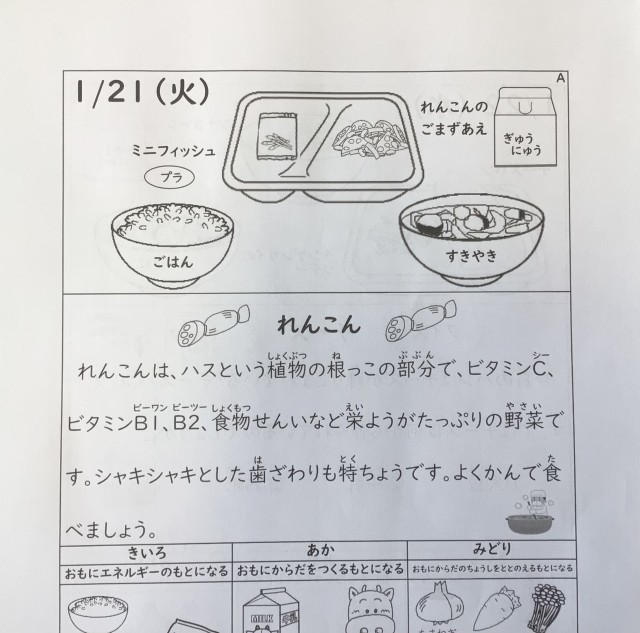 A
1/21(火)
れんこんの
ごまずあえ
ぎゅう
にゅう
ミニフィッシュ
プラ
ごはん
すきやき
れんこん
れんこんは、ハスという植物の根っこの部分で、ビタミンC、
ビタミンB1、B2、食物せんいなど栄ようがたっぷりの野菜で
す。シャキシャキとした歯ざわりも特ちょうです。よくかんで食
べましょう。
きいろ
あか
みどり
おもにエネルギーのもとになる
おもにからだをつくるもとになる
おもにからだのちょうしをととのえるもとになる
MILK